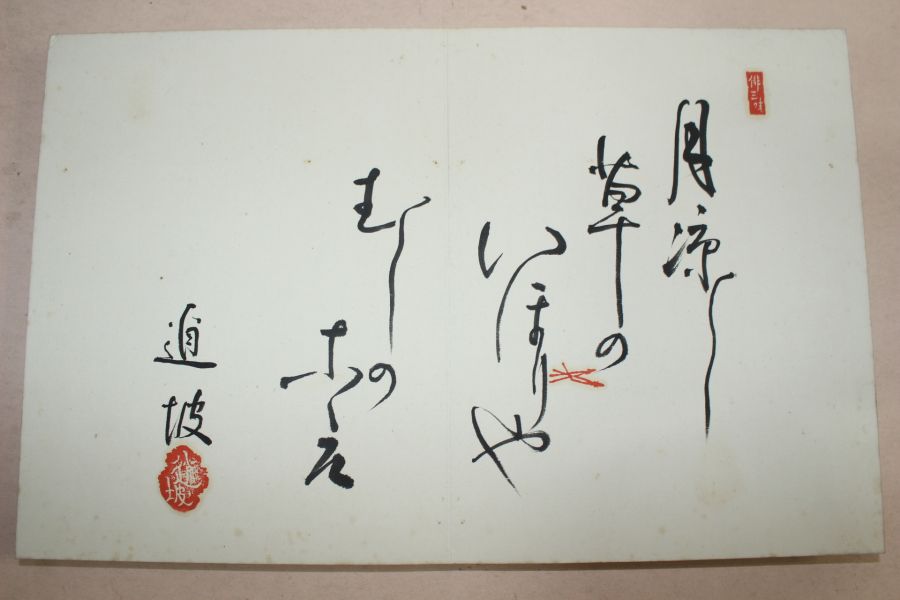 俳三昧
月涼し
草の
いほりや
むしの
こゑ
坡